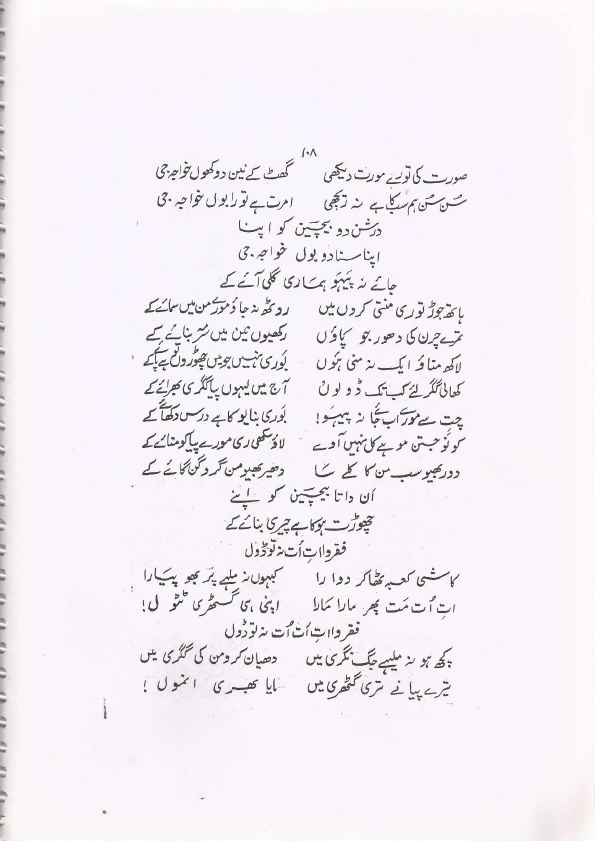 ۱۰۸
صورت کی تورے مورت دیکھی گھٹ کے نین دو کھول خواجہ جی
سن سن ہم سب کا ہے نہ ریجھی امرت ہے تورا بول خواجہ جی
درشن دو بیچین کو اپنا
اپنا سنا دو بول خواجہ جی
جائے نہ پیہو ہماری گلی آئے کے
ہاتھ جوڑ توری منتی کردں میں روٹھ نہ جاؤ مورے من میں سمائے کے
تمرے چرن کی دھور جو پاؤں رکھیوں نین میں سرمہ بنائے کے
لاکھ مناؤ ایک نہ منی ہوں بوری نہیں جو میں چھوڑوں تو ہے پاکے
کھالی گگر لئے کب تک ڈولوں آج میں لیہوں پیا گگری بھرائے کے
چت سے مورے اب جا نہ پیہو! بوری بنایو کا ہے درس دکھائے کے
کونو جتن موہے کل نہیں آوے لاؤ سکھی ری مورے پیا کو منائے کے
دور بھیو سب من کا کلے سا دھیر بھیو من گرو گن گائے کے
ان داتا بیچین کو اپنے
چھوڑت ہو کا ہے چیری بنائے کے
فقروا اتِ اُت نہ تو ڈول
کاشی کعبہ ٹھاکر دوا را کہوں نہ ملہے پر بھو پیارا
اتِ اُت مت پھر مارا مارا اپنی ہی گٹھری ٹٹول!
فقروا اتِ اُت اُت نہ تو ڈول
پچھ ہو نہ ملہے جگ نگری میں دھیان کرو من کی گگری میں
تیرے پیا نے تری گٹھری میں مایا بھری انمول!